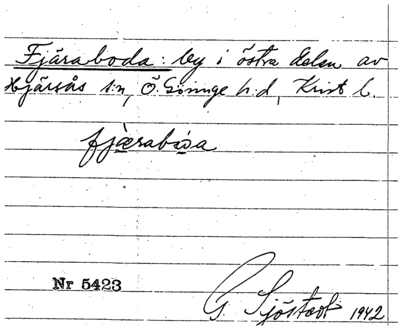 Fjäraboda: by i östra delen av
Hjärsås s:n, Ö. Göinge h.d, Krist l.
fjæraboa
Nr 5423
G. Sjöstedt 1942